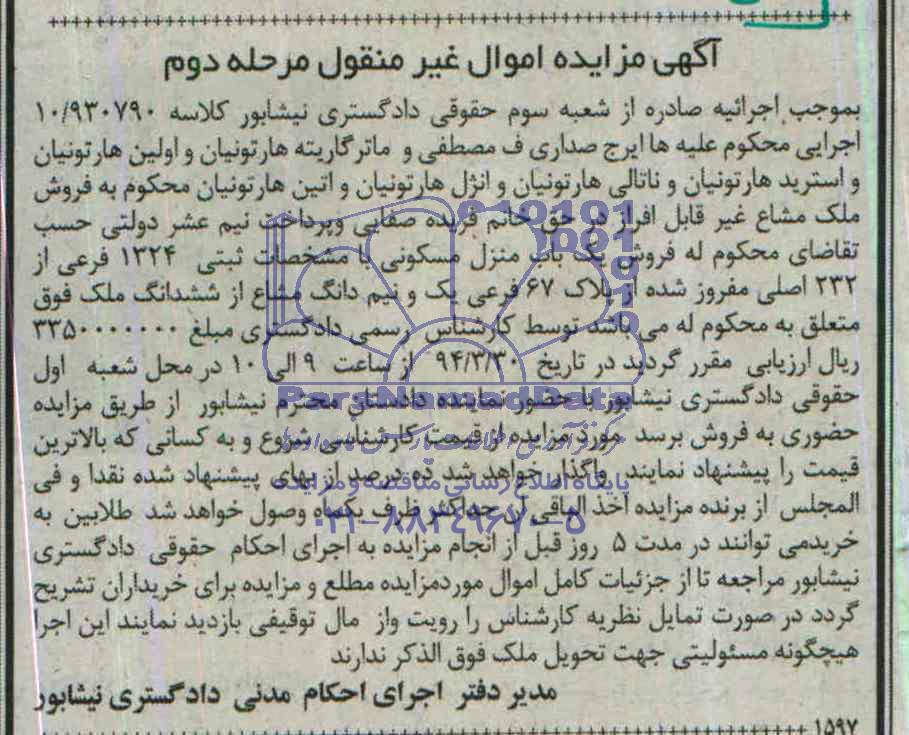 آگهی مزایده اموال غیر منقول مرحله دوم
بموجب اجرائیه صادره از شعبه سوم حقوقی دادگستری نیشابور کلاسه ۱۰/۹۳۰۷۹۰
اجرایی محکوم علیه ها ایرج صداری ف مصطفی و ماترگاریته هارتونیان و اولین هارتونیان
و استرید هارتونیان و ناتالی هارتونیان و انژل هارتونیان و اتین هارتونیان محکوم به فروش
ملک مشاع غیر قابل افراز در حق خانم فریده صفایی وپرداخت نیم عشر دولتی حسب
تقاضای محکوم له فروش یک باب منزل مسکونی با مشخصات ثبتی ۱۳۲۴ فرعی از
۲۳۲ اصلی مفروز شده از پلاک ۶۷ فرعی یک و نیم دانگ مشاع از ششدانگ ملک فوق
متعلق به محکوم له می باشد توسط کارشناس رسمی دادگستری مبلغ ۳۳۵۰۰۰۰۰۰۰
ریال ارزیابی مقرر گردید در تاریخ ۹۴/۳/۳۰ از ساعت ۹ الی ۱۰ در محل شعبه اول
حقوقی دادگستری نیشابور با حضور نماینده دادستان محترم نیشابور از طریق مزایده
حضوری به فروش برسد مورد مزایده از قیمت کارشناسی شروع و به کسانی که بالاترین
قیمت را پیشنهاد نمایند واگذار خواهد شد ده درصد از بهای پیشنهاد شده نقدا و فی
المجلس از برنده مزایده اخذ الباقی آن حداکثر ظرف یکماه وصول خواهد شد طلابین به
خریدمی توانند در مدت ۵ روز قبل از انجام مزایده به اجرای احکام حقوقی دادگستری
نیشابور مراجعه تا از جزئیات کامل اموال موردمزایده مطلع و مزایده برای خریداران تشریح
گردد در صورت تمایل نظریه کارشناس را رویت واز مال توقیفی بازدید نمایند این اجرا
هیچگونه مسئولیتی جهت تحویل ملک فوق الذکر ندارند
مدیر دفتر اجرای احکام مدنی دادگستری نیشابور
۱۵۹۷
ParsNamadData
پایگاه اطلاع رسانی مناقصه و مزایده
۰۲۱-۸۸۳۴۹۶۷۰-۵